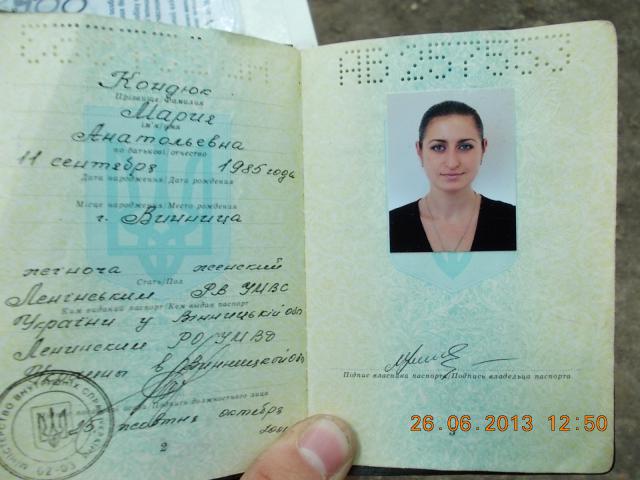 Кондюк
Прізвище/Фамилия
Мария
ім'я/имя
Анатольевна
по батькові/отчество
11 сентября 1985 года
Дата народження/Дата рождения
Місце народження/Место рождения
г. Винница
жіноча женский
Стать/Пол
Ленінським РВ УМВС
Ким виданий паспорт/Кем выдан паспорт
України у Вінницькій обл
Ленинским РО УМВД
Украины в Винницкой обл
/Подпись должностного лица
25 жовтня октября
МІНІСТЕРСТВО ВНУТРІШНІХ СПРАВ УКРАЇНИ
02-03
2
АВ 257550
Підпис власника паспорта/Подпись владельца паспорта
3
26.06.2013 12:50